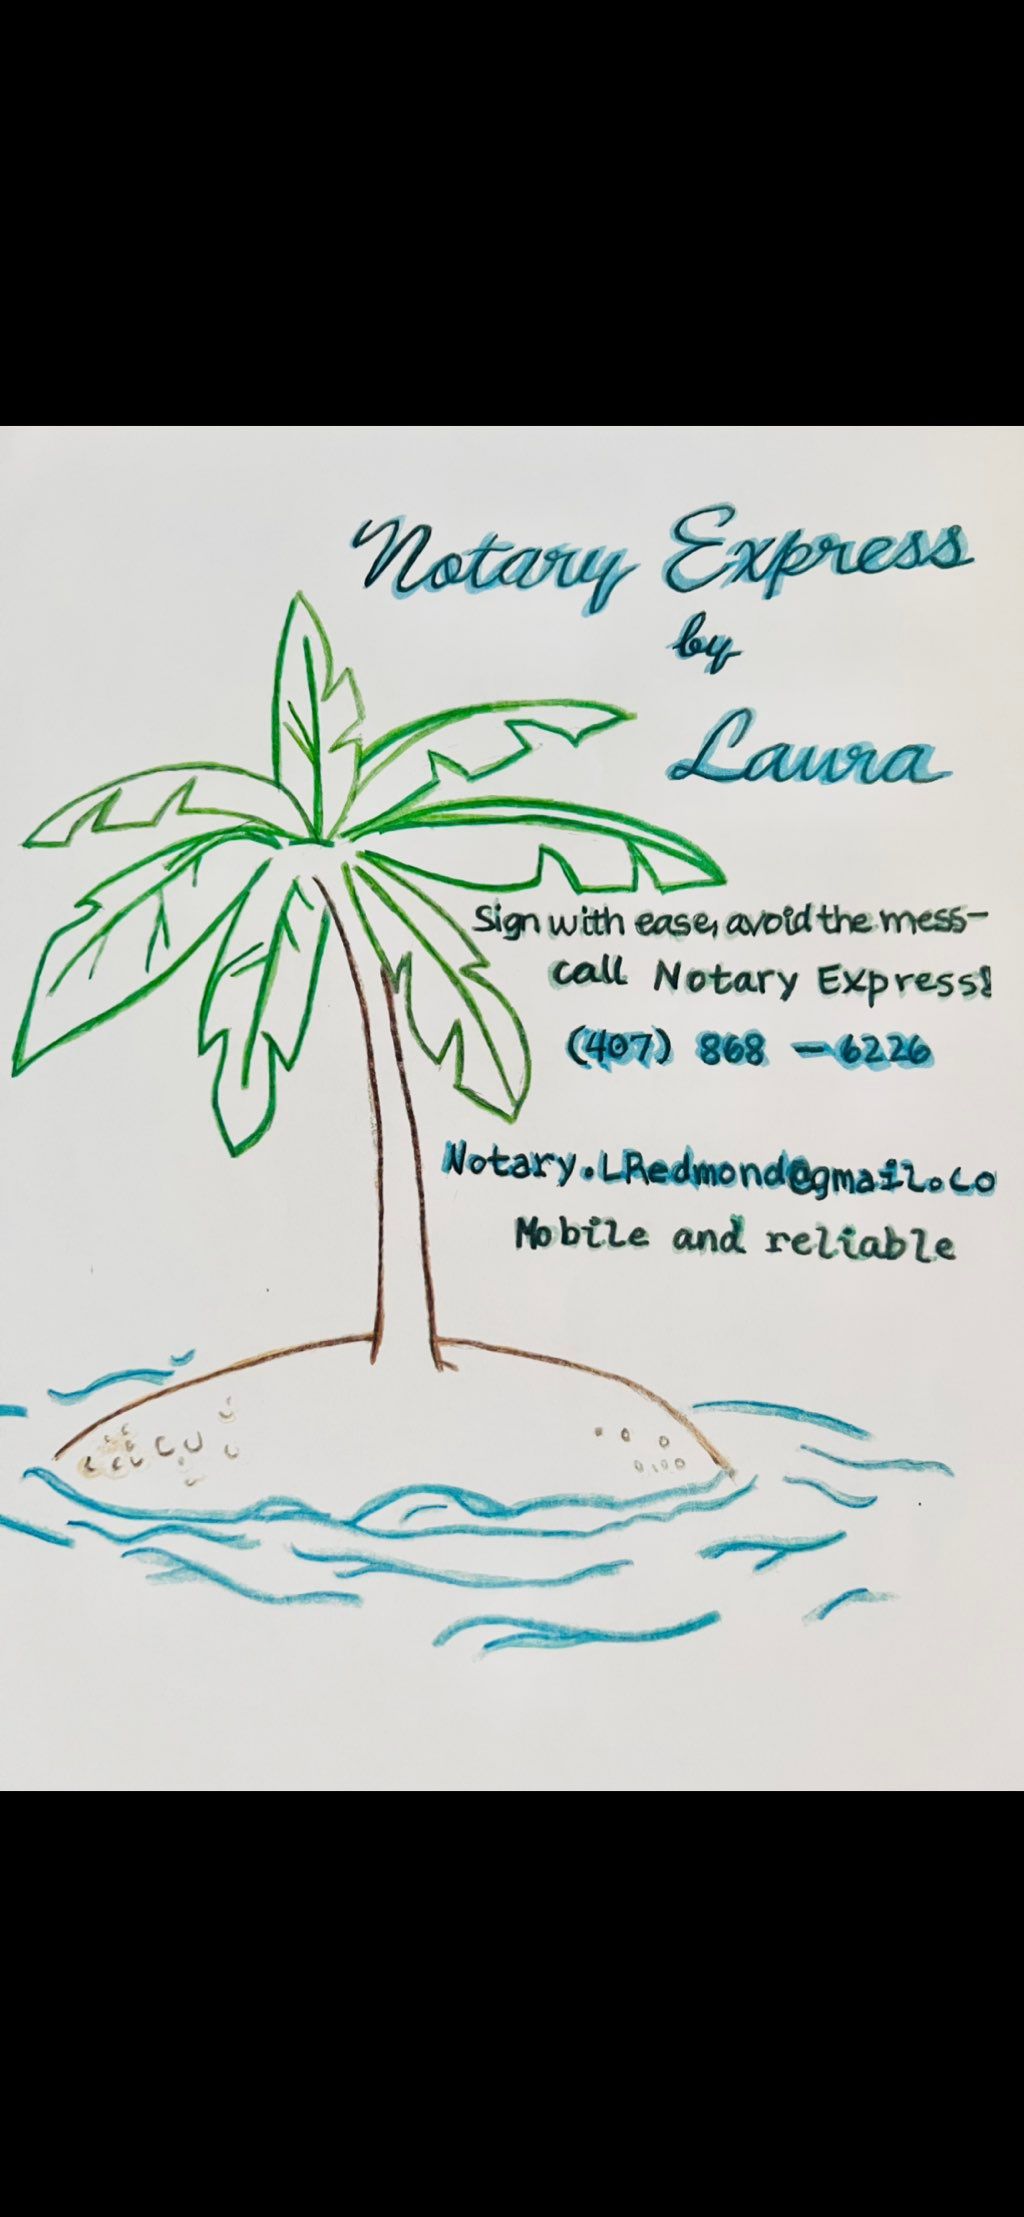 Notary Express
by
Laura
Sign with ease, avoid the mess-
call Notary Express!
(407) 868 - 6226
Notary.LRedmond@gmail.co
Mobile and reliable